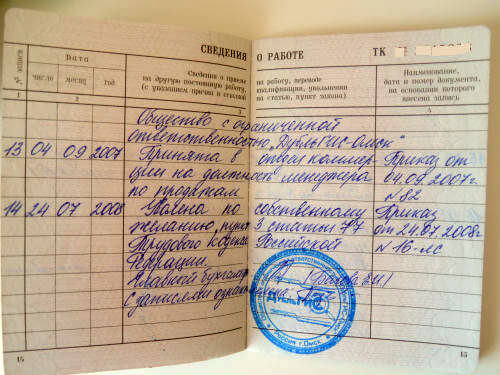 СВЕДЕНИЯ О РАБОТЕ ТК
№ записи
Дата
число месяц год
Сведения о приеме на работу, переводе
на другую постоянную работу, квалификации, увольнении
(с указанием причин и ссылкой на статью, пункт закона)
Наименование,
дата и номер документа,
на основании которого
внесена запись
1 2 3 4
Общество с ограниченной
ответственностью "ДубльГИС-Омск"
13 04 09 2007 Принята в отдел коммер- Приказ от
ции на должность менеджера 04.09.2007г.
по продажам № 82
14 24 07 2008 Уволена по собственному Приказ
желанию, пункт 3 статьи 77 от 24.07.2008г
Трудового кодекса Российской № 16-лс
Федерации.
Главный бухгалтер
С записями
г.Омск